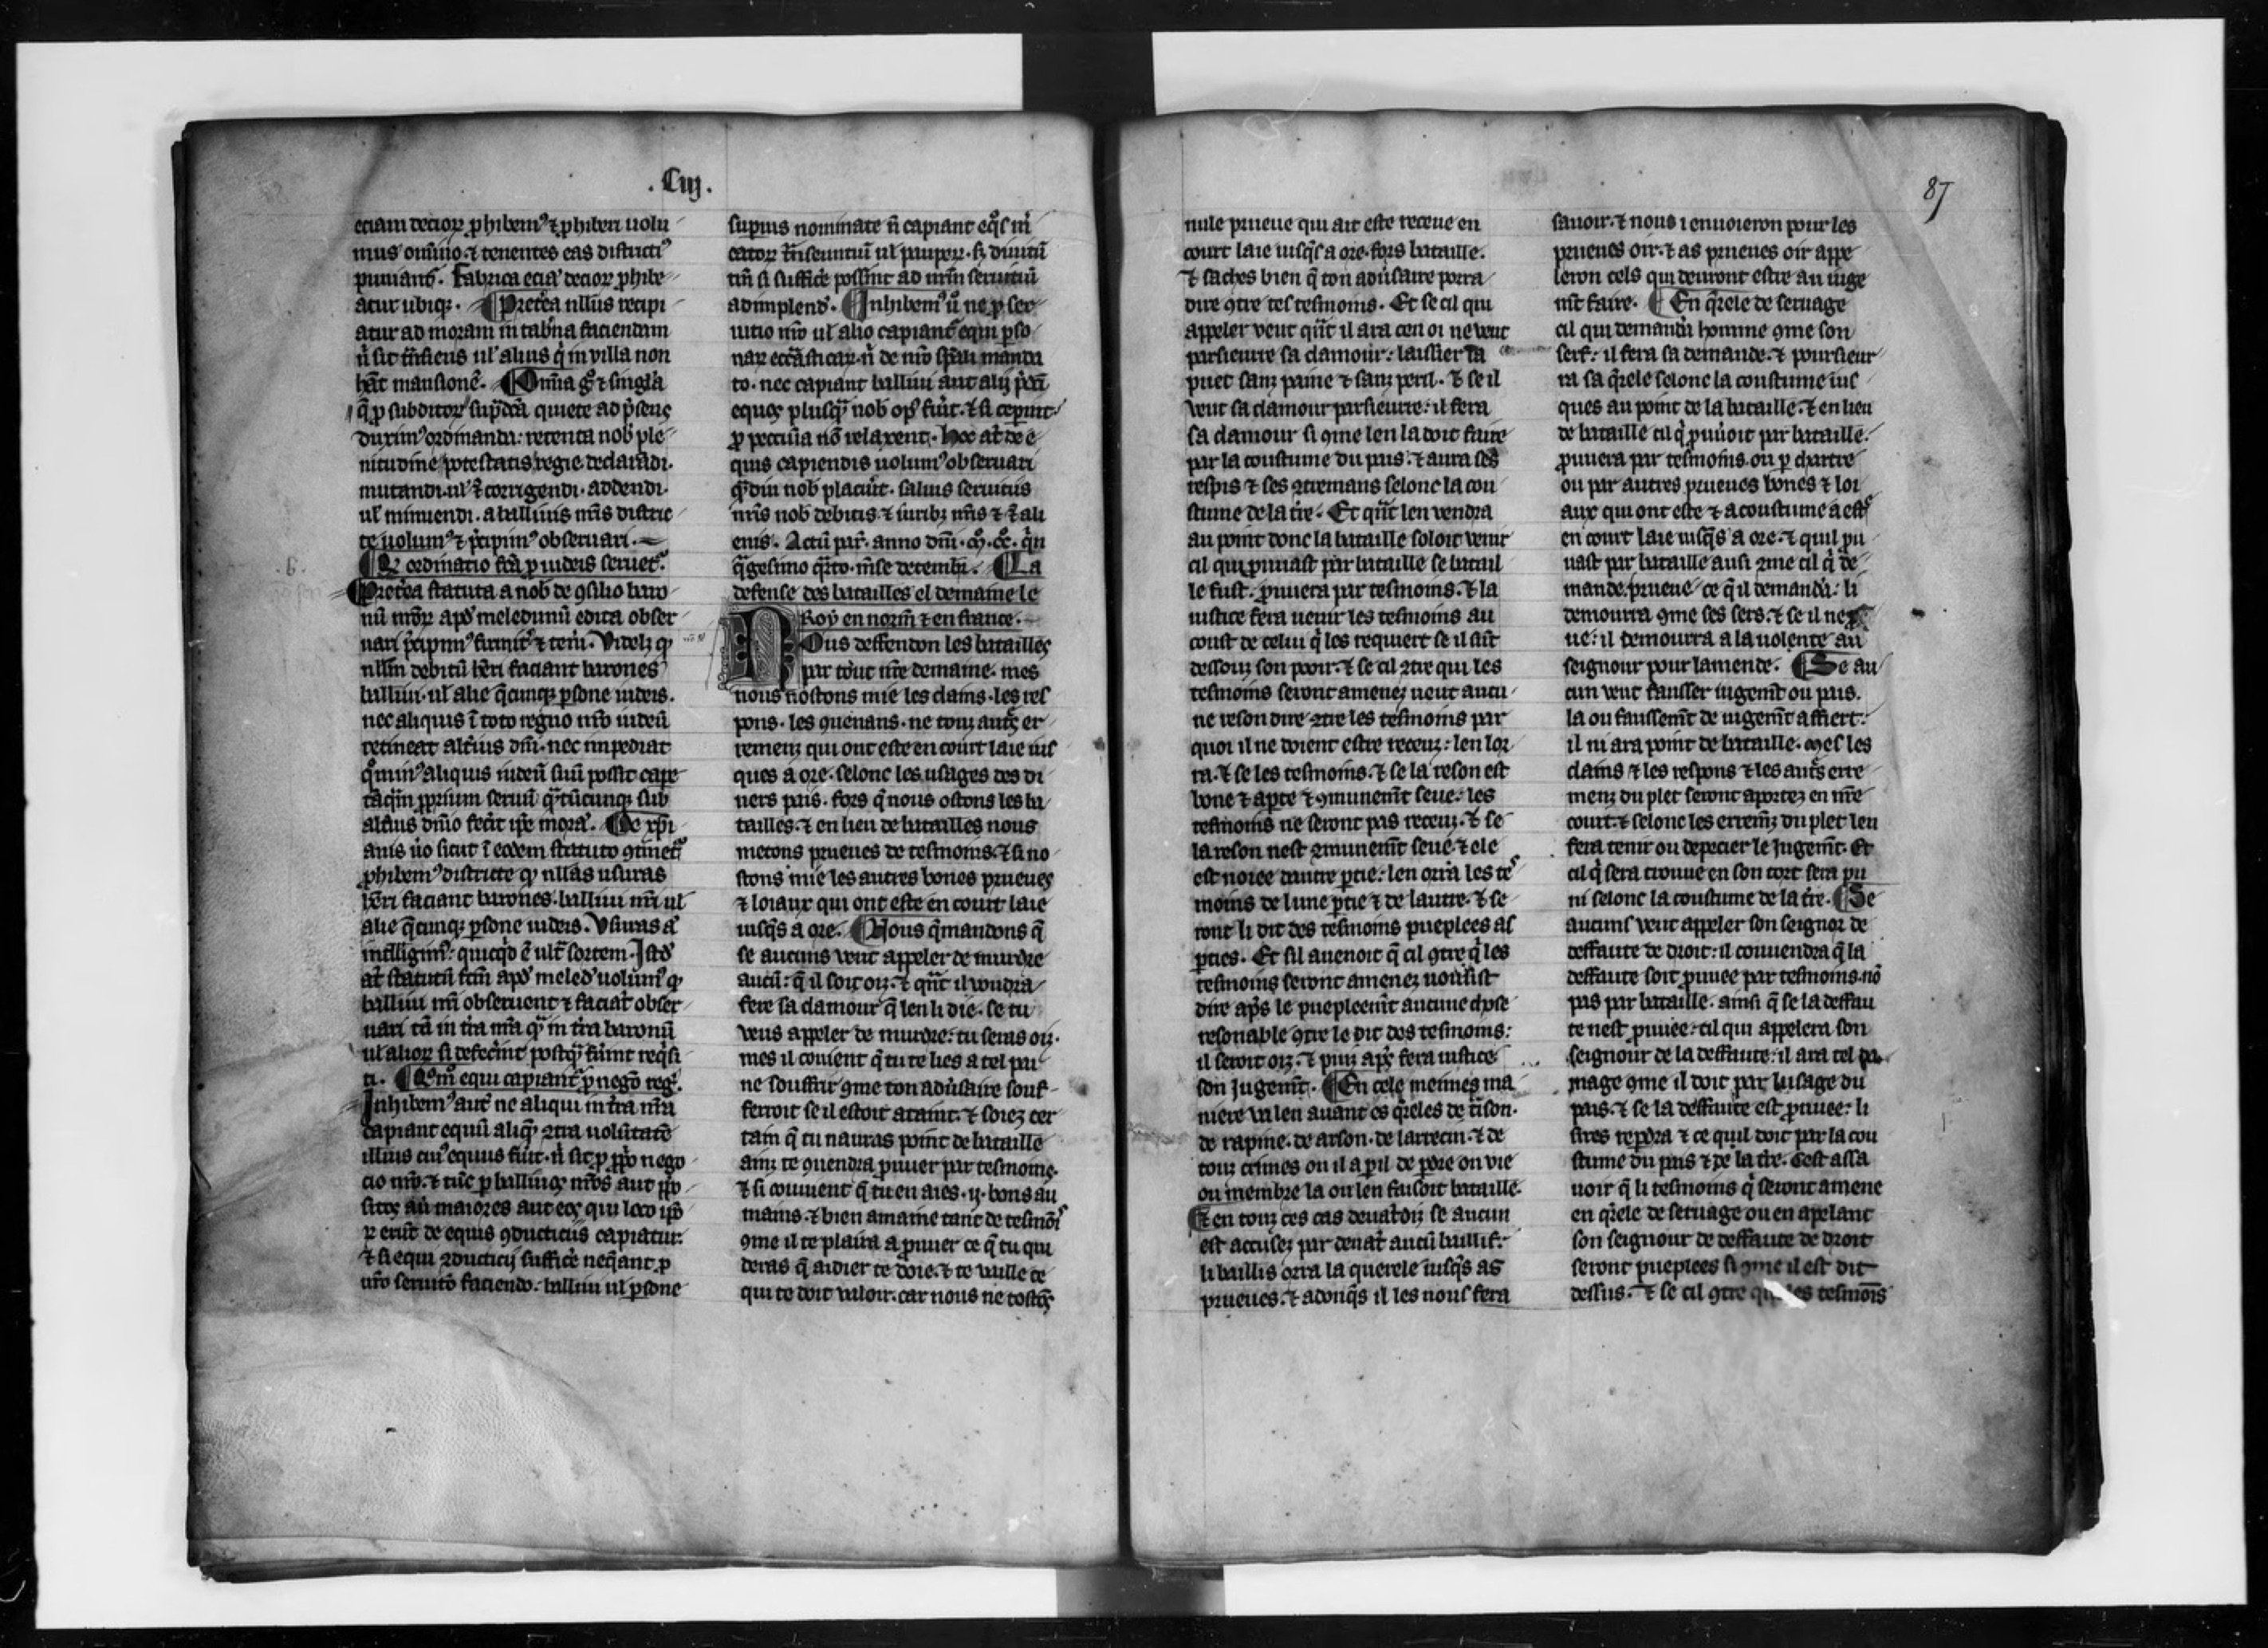 .Ciij.
eciam decioꝝ ꝓhibemꝰ ⁊ ꝓhiberi uolu
mus om̄ino. ⁊ tenentes eas districtiꝰ
puniant̄. Fabrica ecia decioꝝ ꝓhibe
atur ubiqꝫ. ¶ Pret̄ea nllus recipi
atur ad moram in tab̄na faciendam
n̄ sit t̄nsiens ul᷑ alius q̇ in uilla non
hēat mansionē. ¶ Om̄ia g̊ ⁊ singl̄a
q̄ ꝓ subditoꝝ sup̄dc̄a quiete ad p̄sens
duximꝰ ordinanda: retenta nob̄ ple
nitudine potestatis regie declarādi.
mutandi. ul᷑ ⁊ corrigendi. addendi.
ul᷑ minuendi. a balliuis nr̄is districte
te uolumꝰ ⁊ p̄cipimꝰ obseruari.
¶ Qͥ ordinatio fc̄a ꝓ iudeis seruet᷑.
¶ Pret̄ea statuta a nob̄ de ꝯsilio baro
nū nr̄oꝝ apd̄ meledunū edita obser
uari p̄cipimꝰ firmit̄ ⁊ teneri. Videlꝫ ꝙ
nllm̄ debitū hēri faciant barones
balliui. ul᷑ alie q̄cunqꝫ ꝑsone iudeis.
nec aliquis ī toto regno nr̄o iudeū
retineat alt̄ius dn̄i. nec impediat
q̊minꝰ aliquis iudeū suū possit cape
tāq̄m ꝓprium seruū q̄ntūcunqꝫ sub
alt̄ius dn̄io fec̄it ip̄e morā. ¶ De xp̄i
anis ūo sicut ī eodem statuto ꝯtinet᷑
ꝓhibemꝰ districte ꝙ nllas usuras
hēri faciant barones. balliui nr̄i ul᷑
alie q̄cunqꝫ ꝑsone iudeis. Vsuras a᷑
intlligimꝰ: quicq̇d ē ult̄ sortem. Istd̄
at̄ statutū fc̄m apd̄ meled̄ uolumꝰ ꝙ
balliui nr̄i obseruent ⁊ faciāt obser
uari tā in tr̄a nr̄a q̄ in tr̄a baronū
ul᷑ alioꝝ si defec̄int postq̄ fūint req̇si
ti. ¶ Qͦm̊ equi capiant᷑ ꝓ negō reḡ.
Inhibemꝰ aut̄ ne aliqui in tr̄a nr̄a
capiant equū aliq̄ ꝯtra uolūtatē
illius cuiꝰ equus fūit. n̄ sit ꝓ ꝓpo nego
cio nr̄o. ⁊ tūc ꝑ balliuos nr̄os aut ꝓpo
sitos aū maiores aut eos qui loco ip̄o
ꝝ erūt de equis ꝯducticiis capiatur:
⁊ si equi ꝯducticij sufficē neq̄ant ꝓ
nr̄o seruitō faciendo: balliui ul᷑ ꝑsone
supius nominate n̄ capiant eq̊s m̄
catoꝝ t̄nseuntiū ul᷑ paupeꝝ. sꝫ diuitū
tm̄ si sufficē possint ad nr̄m seruitiū
adimplend̄. ¶ Inhibemꝰ ū ne ꝓ ser
uitio nr̄o ul᷑ alio capiant᷑ equi ꝑso
naꝝ ecc̄asticaꝝ n̄ de nr̄o spāli manda
to. nec capiant balliui aut alij p̄dc̄i
equos plusq̄ nob̄ opꝰ fūit. ⁊ si cepint
ꝓ peccunia nō relaxent. Hec at̄ de e
quis capiendis uolumꝰ obseruari
q̄diu nob̄ placūit. saluis seruitiis
nr̄is nob̄ debitis. ⁊ iuribꝫ nr̄is ⁊ ⁊ ali
enis. Actū par̄. anno dn̄i. ꝏ. c̊c̊. q̄n
q̄gesimo q̄rto. m̄se decembr̄. ¶ La
defense des batailles el demaine le
Roy en norm̄ ⁊ en france.
Nous deffendon les batailles
par tout nr̄e demaine. mes
nous nostons mie les clains. les res
pons. les ꝯuenans. ne touz aut̄s er
remenz qui ont este en court laie ius
ques a ore. selonc les usages des di
uers pais. fors q̄ nous ostons les ba
tailles. ⁊ en lieu de batailles nous
metons prueues de tesmoins. ⁊ si no
stons mie les autres bones prueues
⁊ loiaux qui ont este en court laie
iusq̄s a ore. ¶ Nous ꝯmandons q̄
se aucuns veut appeler de murdre
aucū: q̄ il soit oiz. ⁊ qn̄t il voudra
fere sa clamour q̄ len li die. se tu
veus appeler de murdre: tu seras oiz.
mes il couient q̄ tu te lies a tel pai
ne souffrir ꝯme ton adūsaire souf
ferroit se il estoit ataint. ⁊ soiez cer
tain q̄ tu nauras point de bataille
ainz te ꝯuendra pruuer par tesmoins.
⁊ si couuient q̄ tu en aies .ij. bons au
mains. ⁊ bien amaine tant de tesmoīs
ꝯme il te plaira a pruuer ce q̄ tu qui
deras q̄ aidier te doie. ⁊ te vaille ce
qui te doit valoir. car nous ne tostōs
87
nule prueue qui ait este receue en
court laie iusq̄s a ore. fors bataille.
⁊ saches bien q̄ ton adūsaire porra
dire ꝯtre tes tesmoins. Et se cil qui
appeler veut qn̄t il ara cen oi ne veut
parsieurre sa clamour: laissier la
puet sanz paine ⁊ sanz peril. ⁊ se il
veut sa clamour parsieurre: il fera
sa clamour si ꝯme len la doit faire
par la coustume du pais. ⁊ aura ses
respis ⁊ ses ꝯtremans selonc la cou
stume de la t̄re. Et qn̄t len vendra
au point donc la bataille soloit venir
cil qui pruuast par bataille se batail
le fust: pruuera par tesmoins. ⁊ la
iustice fera uenir les tesmoins au
coust de celui q̇ les requiert se il sūt
dessouz son pooir. ⁊ se cil ꝯtre qui les
tesmoins seront amenez ueut aucu
ne reson dire ꝯtre les tesmoins par
quoi il ne doient estre receuz: len lor
ra. ⁊ se les tesmoins. ⁊ se la reson est
bone ⁊ aperte ⁊ ꝯmunemt̄ seue: les
tesmoins ne seront pas receuz. ⁊ se
la reson nest ꝯmunemt̄ seue ⁊ ele
est noiee dautre ꝑtie: len orra les tes
moins de lune ꝑtie ⁊ de lautre. ⁊ se
ront li dit des tesmoins pueplees as
ꝑties. Et sil auenoit q̄ cil ꝯtre q̇ les
tesmoins seront amenez uousist
dire ap̄s le puepleemt̄ aucune chose
resonable ꝯtre le dit des tesmoins:
il seroit oiz. ⁊ puis ap̄s fera iustice
son Jugemt̄. ¶ En cele meimes ma
niere va len auant es q̄reles de t̄ison.
de rapine. de arson. de larrecin. ⁊ de
touz crimes ou il a ꝑil de ꝑdre ou vie
ou membre la ou len faisoit bataille.
¶ Et en touz ces cas deuātdiz se aucun
est accusez par deuāt aucū baillif:
li baillis orra la querele iusq̄s as
prueues. ⁊ adonq̄s il les nous fera
sauoir. ⁊ nous i enuoieron pour les
prueues oir. ⁊ as prueues oir appe
leron cels qui deuront estre au iuge
mt̄ faire. ¶ En q̄rele de seruage
cil qui demandera homme ꝯme son
serf: il fera sa demande. ⁊ poursieur
ra sa q̄rele selonc la coustume ius
ques au point de la bataille. ⁊ en lieu
de bataille cil q̇ pruuoit par bataille:
pruuera par tesmoins. ou ꝑ chartre
ou par autres prueues bones ⁊ loi
aux qui ont este ⁊ acoustume a estre
en court laie iusq̄s a ore. ⁊ quil pru
uast par bataille ausi ꝯme cil q̇ de
mande. prueue ce q̄ il demanda: li
demourra ꝯme ses sers. ⁊ se il ne
ue: il demourra a la uolente au
seignour pour lamende. ¶ Se au
cun veut fausser iugemt̄ ou pais.
la ou faussemt̄ de iugemt̄ affiert:
il ni ara point de bataille. mes les
clains ⁊ les respons ⁊ les aut̄s erre
menz du plet seront aportez en nr̄e
court. ⁊ selonc les erremz̄ du plet len
fera tenir ou depecier le Jugemt̄. Et
cil q̇ sera trouue en son tort sera pu
ni selonc la coustume de la t̄re. ¶ Se
aucuns veut appeler son seignor de
deffaute de droit: il conuendra q̄ la
deffaute soit pruuee par tesmoins. nō
pas par bataille. ainsi q̄ se la deffau
te nest pruuee: cil qui appelera son
seignour de la deffaute: il ara tel da
mage ꝯme il doit par lusage du
pais. ⁊ se la deffaute est pruuee: li
sires repdra ⁊ ce quil doit par la cou
stume du pais ⁊ de la t̄re. Cest assa
uoir q̄ li tesmoins q̇ seront amene
en q̄rele de seruage ou en apelant
son seignour de deffaute de droit
seront pueplees si ꝯme il est dit
dessus. ⁊ se cil ꝯtre tesmoīs